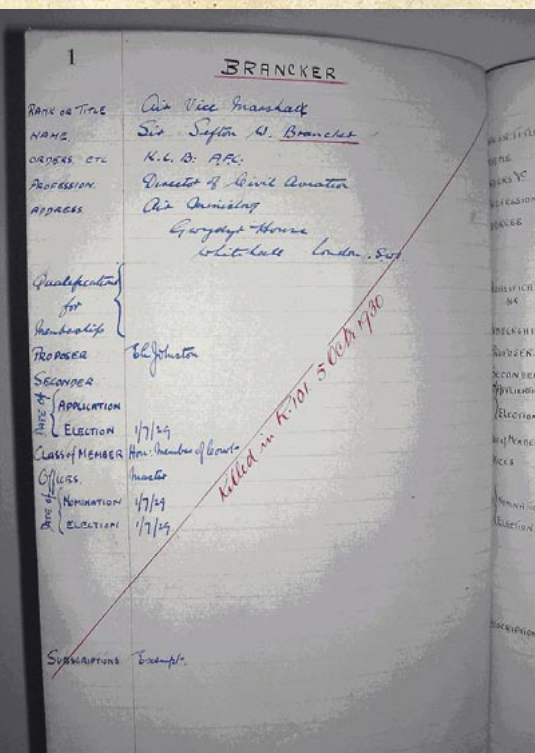 1
BRANCKER
RANK OR TITLE Air Vice Marshall
NAME. Sir Sefton W. Brancker
ORDERS. ETC K.C.B; AFC.
PROFESSION. Director of Civil Aviation
ADDRESS. Air Ministry
Gwydyr House
Whitehall London. S.W.1.
Qualifications
for
Membership
PROPOSER Johnston
SECONDER
DATE OF
APPLICATION
ELECTION 1/7/29
CLASS of MEMBER Hon: Member of Court.
OFFICES. Master
DATE of
NOMINATION 1/7/29
ELECTION 1/7/29
Killed in R.101. 5 Octr 1930
SUBSCRIPTIONS Exempt.